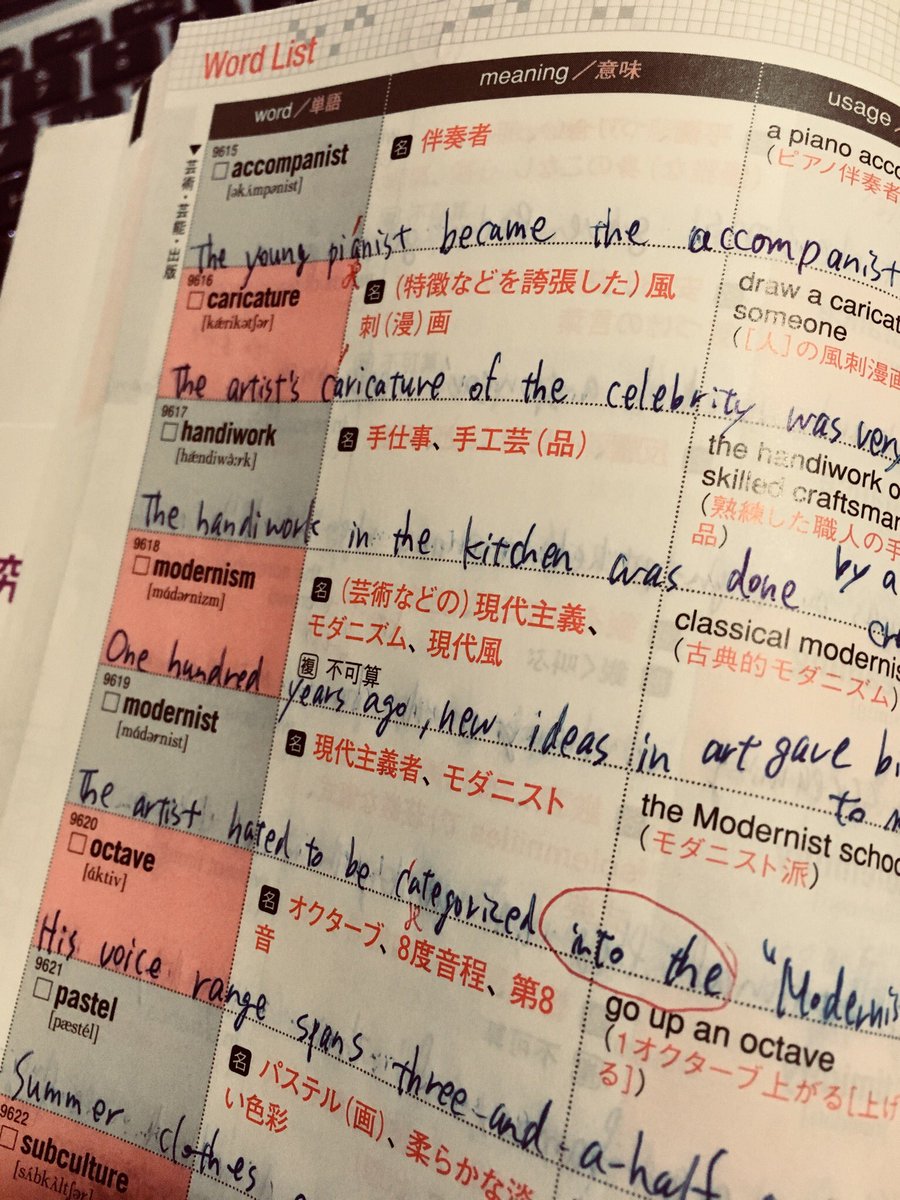 Word List
word/単語 meaning/意味 usage/
▼芸術・芸能・出版
9615
accompanist
[əkʌ́mpənist]
名 伴奏者
a piano acco
(ピアノ伴奏者
The young pianist became the accompanist
9616
caricature
[kǽrikətʃər]
名 (特徴などを誇張した)風
刺(漫)画
draw a caricat
someone
([人]の風刺漫画
The artist's caricature of the celebrity was very
9617
handiwork
[hǽndiwə̀ːrk]
名 手仕事、手工芸(品)
the handiwork o
skilled craftsma
(熟練した職人の手
品)
The handiwork in the kitchen was done by a
9618
modernism
[mɑ́dərnìzm]
名 (芸術などの)現代主義、
モダニズム、現代風
複 不可算
classical modernis
(古典的モダニズム)
One hundred years ago, new ideas in art gave bi
to
9619
modernist
[mɑ́dərnist]
名 現代主義者、モダニスト
the Modernist schoo
(モダニスト派)
The artist hated to be categorized into the "Modernis
9620
octave
[ɑ́ktiv]
名 オクターブ、8度音程、第8
音
go up an octave
(1オクターブ上がる[上げ
る])
His voice range spans three-and-a-half
9621
pastel
[pæstél]
名 パステル(画)、柔らかな淡
い色彩
Summer clothes
9622
subculture
[sʌ́bkʌ̀ltʃər]